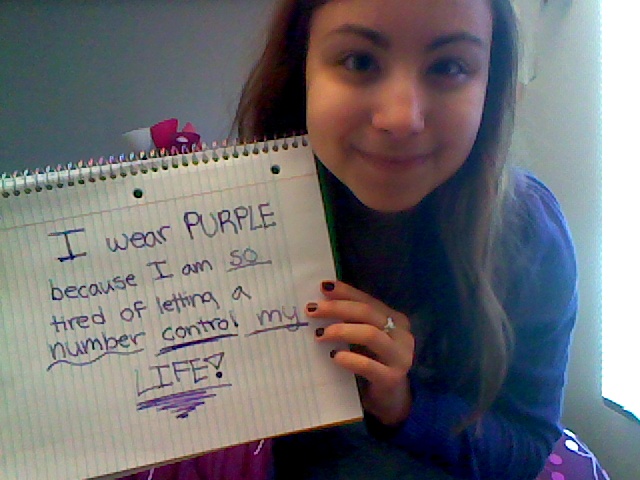 I wear PURPLE
because I am so
tired of letting a
number control my
LIFE!